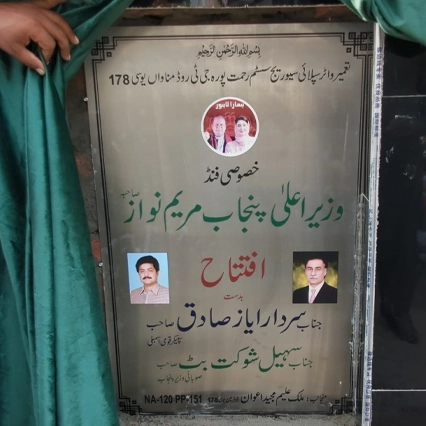 بِسْمِ اللهِ الرَّحْمٰنِ الرَّحِيْمِ
تعمیر واٹر سپلائی سیوریج سسٹم رحمت پورہ جی ٹی روڈ مناواں یوسی 178
ہمارا لاہور
خصوصی فنڈ
وزیراعلیٰ پنجاب مریم نواز صاحبہ
افتتاح
بدست
جناب سردار ایاز صادق صاحب
سپیکر قومی اسمبلی
جناب سہیل شوکت بٹ صاحب
صوبائی وزیر پنجاب
منجانب: ملک علیم مجید اعوان 178 NA-120 PP-151